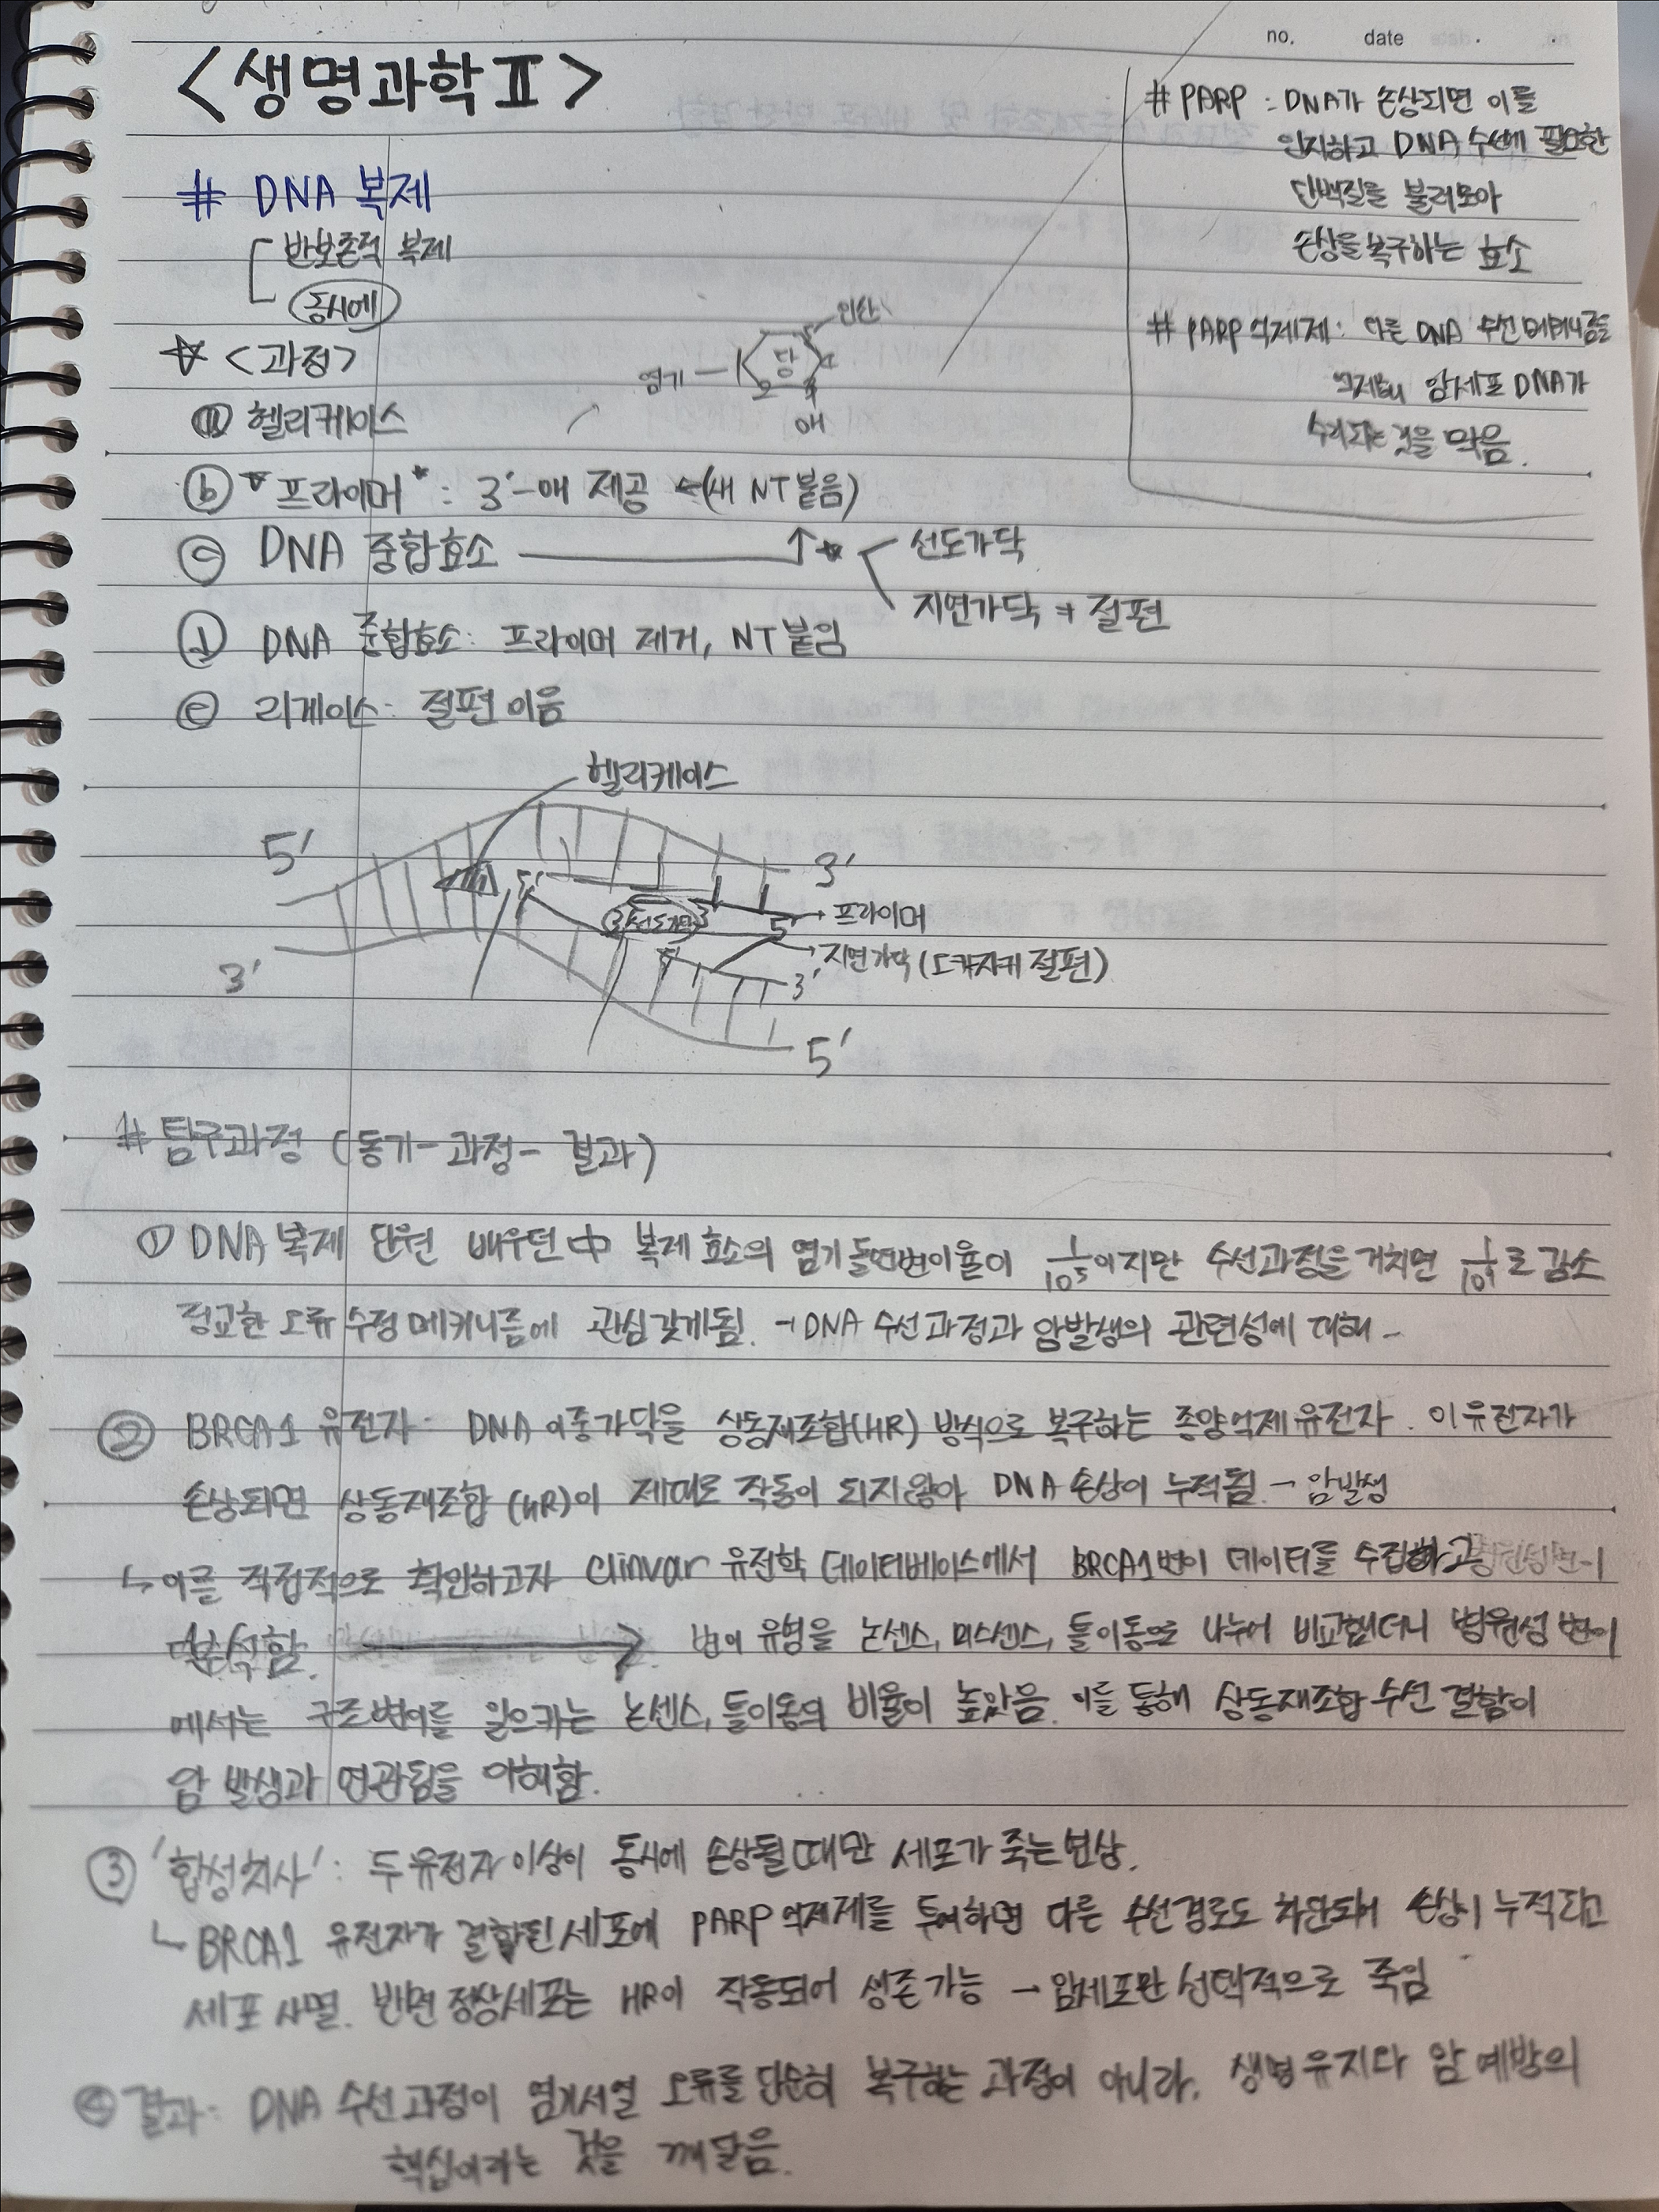 no. date
<생명과학 II>
# DNA 복제
반보존적 복제
동시에
☆ <과정>
ⓐ 헬리케이스
ⓑ ☆프라이머* : 3'-OH 제공 ←(새 NT붙음)
ⓒ DNA 중합효소 ↑☆
선도가닥
지연가닥 → 절편
ⓓ DNA 중합효소: 프라이머 제거, NT붙임
ⓔ 리게이스: 절편이음
인산
당
염기
1
2
3
4
OH
# PARP : DNA가 손상되면 이를
인지하고 DNA 수선에 필요한
단백질을 불러모아
손상을 복구하는 효소
# PARP억제제: 다른 DNA 수선 메커니즘을
억제해 암세포 DNA가
수리되는 것을 막음.
헬리케이스
5'
3'
5'
3' 선도가닥 3'
5' → 프라이머
→ 지연가닥 (오카자키 절편)
3'
5'
3'
5'
# 탐구과정 (동기-과정-결과)
① DNA 복제 단원 배우던中 복제효소의 염기돌연변이율이 1/10⁵이지만 수선과정을 거치면 1/10⁹로 감소
정교한 오류 수정 메커니즘에 관심갖게됨. → DNA 수선과정과 암발생의 관련성에 대해 -
② BRCA1 유전자: DNA 이중가닥을 상동재조합(HR) 방식으로 복구하는 종양억제유전자. 이유전자가
손상되면 상동재조합 (HR)이 제대로 작동이 되지않아 DNA 손상이 누적됨 → 암발생
↳ 이를 직접적으로 확인하고자 clinvar 유전학 데이터베이스에서 BRCA1변이 데이터를 수집하고 병원성변이
분석함. → 변이 유형을 논센스, 미스센스, 틀이동으로 나누어 비교했더니 병원성 변이
에서는 구조변이를 일으키는 논센스, 틀이동의 비율이 높았음. 이를 통해 상동재조합 수선 결함이
암 발생과 연관됨을 이해함.
③ '합성치사': 두유전자 이상이 동시에 손상될때만 세포가 죽는현상.
↳ BRCA1 유전자가 결함된 세포에 PARP억제제를 투여하면 다른 수선경로도 차단되어 손상이 누적되고
세포 사멸. 반면 정상세포는 HR이 작동되어 생존가능 → 암세포만 선택적으로 죽임
④ 결과: DNA 수선과정이 염기서열 오류를 단순히 복구하는 과정이 아니라, 생명유지와 암 예방의
핵심이라는 것을 깨달음.